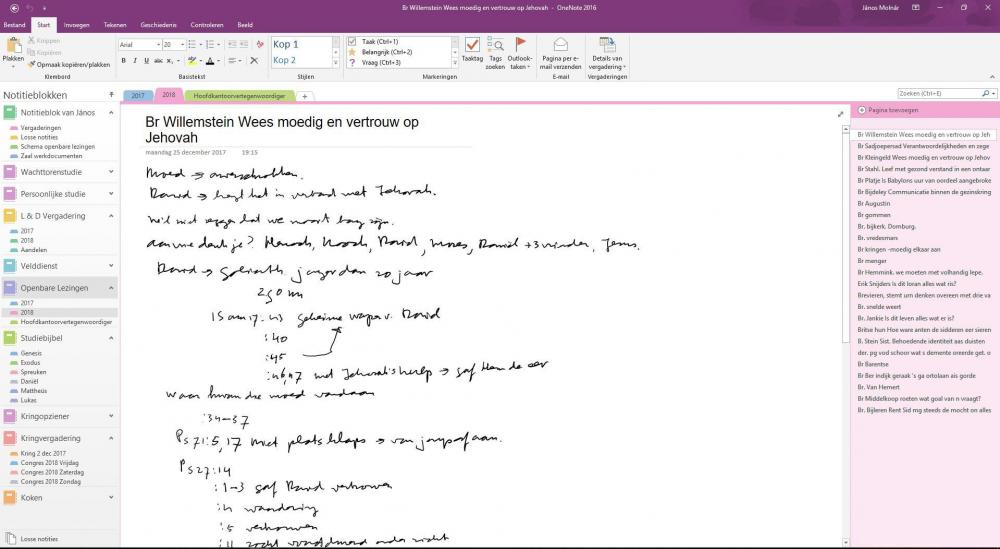 Br Willemstein Wees moedig en vertrouw op Jehovah - OneNote 2016
János Molnár
Bestand Start Invoegen Tekenen Geschiedenis Controleren Beeld
Plakken
Knippen
Kopiëren
Opmaak kopiëren/plakken
Klembord
Arial 20
B I U abc
Basistekst
Kop 1
Kop 2
Stijlen
Taak (Ctrl+1)
Belangrijk (Ctrl+2)
Vraag (Ctrl+3)
Markeringen
Taaktag
Tags zoeken
Outlook-taken
Pagina per e-mail verzenden
E-mail
Details van vergadering
Vergaderingen
Notitieblokken
Notitieblok van János
Vergaderingen
Losse notities
Schema openbare lezingen
Zaal werkdocumenten
Wachttorenstudie
Persoonlijke studie
L & D Vergadering
2017
2018
Aandelen
Velddienst
Openbare Lezingen
2017
2018
Hoofdkantoorvertegenwoordiger
Studiebijbel
Genesis
Exodus
Spreuken
Daniël
Mattheüs
Lukas
Kringopziener
Kringvergadering
Kring 2 dec 2017
Congres 2018 Vrijdag
Congres 2018 Zaterdag
Congres 2018 Zondag
Koken
Losse notities
2017 2018 Hoofdkantoorvertegenwoordiger +
Zoeken (Ctrl+E)
Br Willemstein Wees moedig en vertrouw op
Jehovah
maandag 25 december 2017 19:15
Moed → onverschrokken.
David → in verband met Jehovah.
wil niet zeggen dat we nooit bang zijn.
aan wie denk je? Henoch, Noach, David, Mozes, Daniël + 3 vrienden, Jezus.
David → Goliath jonger dan 20 jaar
290 cm
1 Sam 17: 43 geheime wapen v. David
:40
:45
:46,47 met Jehovah's hulp → gaf Hem de eer
waar kwam die moed vandaan
:34-37
Ps 71:5,17 niet plotsklaps → van jongsaf aan.
Ps 27:14
:1-3 gaf David vertrouwen
:4 waardering
:5 vertrouwen
Pagina toevoegen
Br Willemstein Wees moedig en vertrouw op Jeh
Br Sadjoepersad Verantwoordelijkheden en zege
Br Kleingeld Wees moedig en vertrouw op Jehov
Br Stahl. Leef met gezond verstand in een ontaar
Br Platje Is Babylons uur van oordeel aangebroke
Br Bijdeley Communicatie binnen de gezinskring
Br Augustin
Br gommen
Br. bijkerk. Domburg.
Br. vredesman
Br kringen -moedig elkaar aan
Br menger
Br Hemmink. we moeten met volhandig lepe.
Erik Snijders Is dit loran alles wat ris?
Brevieren, stemt urn denken overeen met drie va
Br. snelde weert
Br. Jankie Is dit leven alles wat er is?
Britse hun Hoe ware anten de sidderen eer sieren
B. Stein Sist. Behoedende identiteit aas duisten
der. pg vod schoor wat s demente oreerde get. o
Br Barentse
Br Ber indijk geraak 's ga ortolaan ais gorde
Br. Van Hemert
Br Middelkoop roeten wat goal van n vraagt?
Br. Bijleren Rent Sid mg steeds de mocht on alles